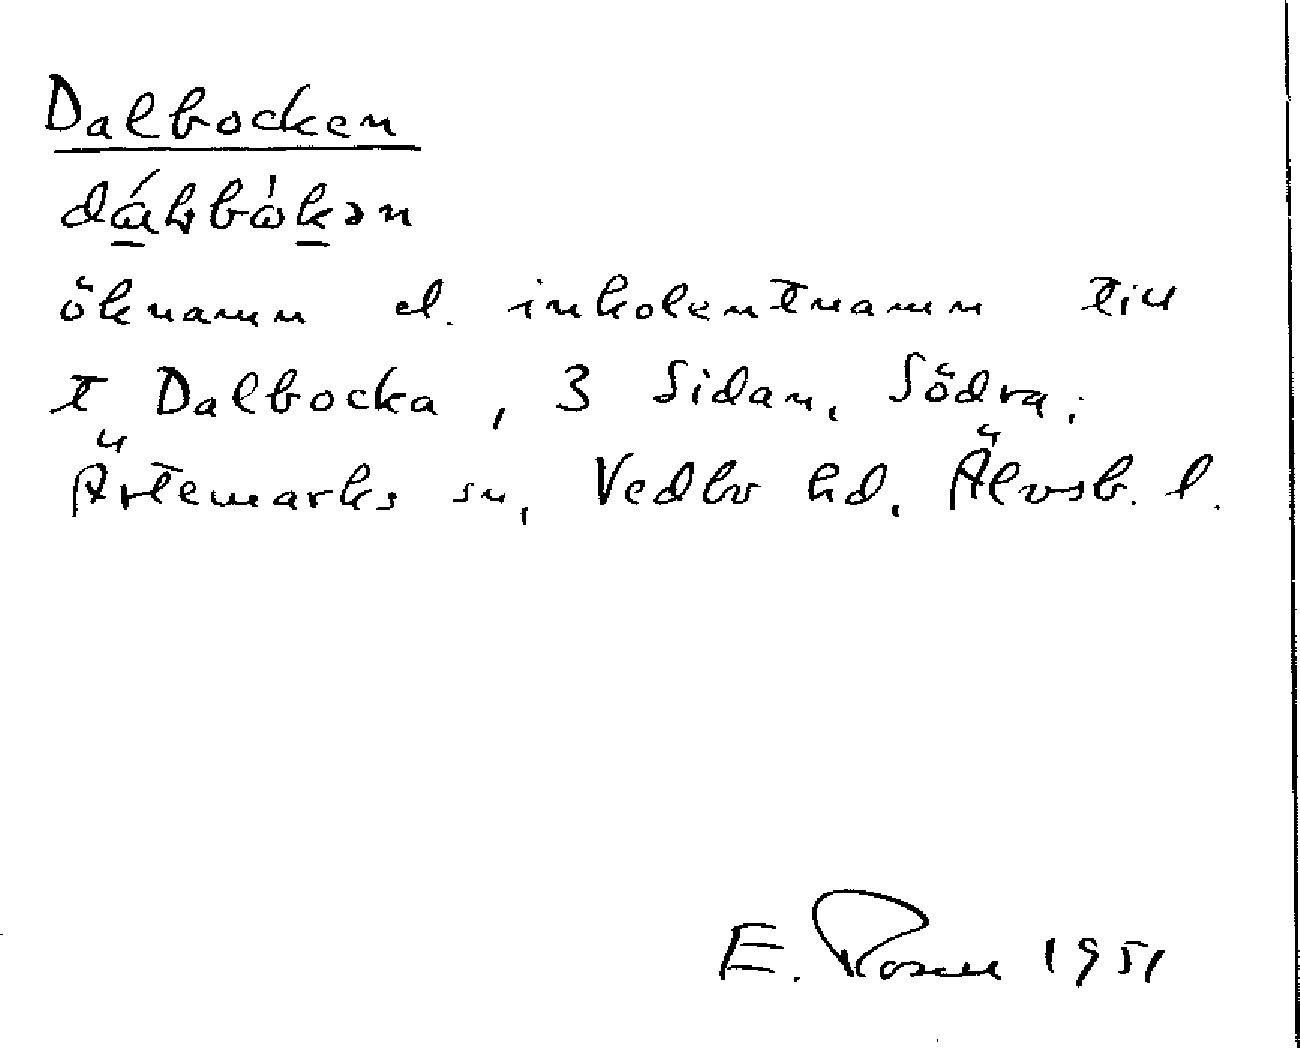 Dalbocken
öknamn el. inkolentnamn till
t Dalbocka, 3 Sidan, Södra,
Ärtemarks sn, Vedbo hd, Älvsb. l.
E. Rosen 1951